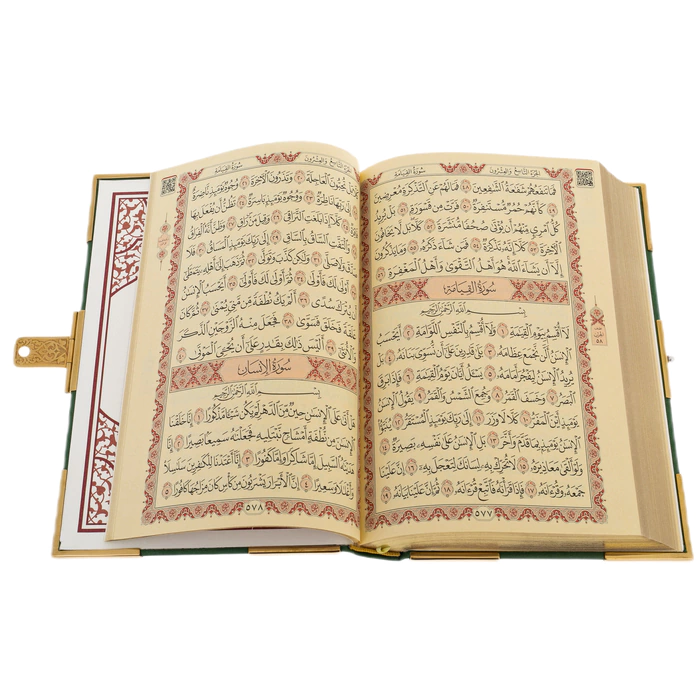 سُورَةُ القِيَامَةِ الجُزءُ التَّاسِعُ وَالعِشْرُونَ
فَمَا تَنفَعُهُمْ شَفَٰعَةُ ٱلشَّٰفِعِينَ ٤٨ فَمَا لَهُمْ عَنِ ٱلتَّذْكِرَةِ مُعْرِضِينَ
٤٩ كَأَنَّهُمْ حُمُرٌ مُّسْتَنفِرَةٌ ٥٠ فَرَّتْ مِن قَسْوَرَةٍ ٥١ بَلْ يُرِيدُ
كُلُّ ٱمْرِئٍ مِّنْهُمْ أَن يُؤْتَىٰ صُحُفًا مُّنَشَّرَةً ٥٢ كَلَّا بَل لَّا يَخَافُونَ
ٱلْءَاخِرَةَ ٥٣ كَلَّآ إِنَّهُۥ تَذْكِرَةٌ ٥٤ فَمَن شَآءَ ذَكَرَهُۥ ٥٥ وَمَا يَذْكُرُونَ
إِلَّآ أَن يَشَآءَ ٱللَّهُ هُوَ أَهْلُ ٱلتَّقْوَىٰ وَأَهْلُ ٱلْمَغْفِرَةِ ٥٦
سُورَةُ القِيَامَةِ
بِسْمِ ٱللَّهِ ٱلرَّحْمَٰنِ ٱلرَّحِيمِ
لَآ أُقْسِمُ بِيَوْمِ ٱلْقِيَٰمَةِ ١ وَلَآ أُقْسِمُ بِٱلنَّفْسِ ٱللَّوَّامَةِ ٢ أَيَحْسَبُ
ٱلْإِنسَٰنُ أَلَّن نَّجْمَعَ عِظَامَهُۥ ٣ بَلَىٰ قَٰدِرِينَ عَلَىٰٓ أَن نُّسَوِّيَ بَنَانَهُۥ ٤ بَلْ
يُرِيدُ ٱلْإِنسَٰنُ لِيَفْجُرَ أَمَامَهُۥ ٥ يَسْـَٔلُ أَيَّانَ يَوْمُ ٱلْقِيَٰمَةِ ٦ فَإِذَا بَرِقَ
ٱلْبَصَرُ ٧ وَخَسَفَ ٱلْقَمَرُ ٨ وَجُمِعَ ٱلشَّمْسُ وَٱلْقَمَرُ ٩ يَقُولُ ٱلْإِنسَٰنُ
يَوْمَئِذٍ أَيْنَ ٱلْمَفَرُّ ١٠ كَلَّا لَا وَزَرَ ١١ إِلَىٰ رَبِّكَ يَوْمَئِذٍ ٱلْمُسْتَقَرُّ ١٢ يُنَبَّؤُا۟
ٱلْإِنسَٰنُ يَوْمَئِذٍۭ بِمَا قَدَّمَ وَأَخَّرَ ١٣ بَلِ ٱلْإِنسَٰنُ عَلَىٰ نَفْسِهِۦ بَصِيرَةٌ ١٤
وَلَوْ أَلْقَىٰ مَعَاذِيرَهُۥ ١٥ لَا تُحَرِّكْ بِهِۦ لِسَانَكَ لِتَعْجَلَ بِهِۦٓ ١٦ إِنَّ عَلَيْنَا
جَمْعَهُۥ وَقُرْءَانَهُۥ ١٧ فَإِذَا قَرَأْنَٰهُ فَٱتَّبِعْ قُرْءَانَهُۥ ١٨ ثُمَّ إِنَّ عَلَيْنَا بَيَانَهُۥ ١٩
٥٧٧
سُورَةُ القِيَامَةِ الجُزءُ التَّاسِعُ وَالعِشْرُونَ
كَلَّا بَلْ تُحِبُّونَ ٱلْعَاجِلَةَ ٢٠ وَتَذَرُونَ ٱلْءَاخِرَةَ ٢١ وُجُوهٌ يَوْمَئِذٍ نَّاضِرَةٌ
٢٢ إِلَىٰ رَبِّهَا نَاظِرَةٌ ٢٣ وَوُجُوهٌ يَوْمَئِذٍۭ بَاسِرَةٌ ٢٤ تَظُنُّ أَن يُفْعَلَ بِهَا
فَاقِرَةٌ ٢٥ كَلَّآ إِذَا بَلَغَتِ ٱلتَّرَاقِيَ ٢٦ وَقِيلَ مَنْ رَاقٍ ٢٧ وَظَنَّ أَنَّهُ ٱلْفِرَاقُ
٢٨ وَٱلْتَفَّتِ ٱلسَّاقُ بِٱلسَّاقِ ٢٩ إِلَىٰ رَبِّكَ يَوْمَئِذٍ ٱلْمَسَاقُ ٣٠ فَلَا
صَدَّقَ وَلَا صَلَّىٰ ٣١ وَلَٰكِن كَذَّبَ وَتَوَلَّىٰ ٣٢ ثُمَّ ذَهَبَ إِلَىٰٓ أَهْلِهِۦ يَتَمَطَّىٰٓ
٣٣ أَوْلَىٰ لَكَ فَأَوْلَىٰ ٣٤ ثُمَّ أَوْلَىٰ لَكَ فَأَوْلَىٰٓ ٣٥ أَيَحْسَبُ ٱلْإِنسَٰنُ
أَن يُتْرَكَ سُدًى ٣٦ أَلَمْ يَكُ نُطْفَةً مِّن مَّنِيٍّ يُمْنَىٰ ٣٧ ثُمَّ كَانَ
عَلَقَةً فَخَلَقَ فَسَوَّىٰ ٣٨ فَجَعَلَ مِنْهُ ٱلزَّوْجَيْنِ ٱلذَّكَرَ
وَٱلْأُنثَىٰٓ ٣٩ أَلَيْسَ ذَٰلِكَ بِقَٰدِرٍ عَلَىٰٓ أَن يُحْـِۧيَ ٱلْمَوْتَىٰ ٤٠
سُورَةُ الإِنسَانِ
بِسْمِ ٱللَّهِ ٱلرَّحْمَٰنِ ٱلرَّحِيمِ
هَلْ أَتَىٰ عَلَى ٱلْإِنسَٰنِ حِينٌ مِّنَ ٱلدَّهْرِ لَمْ يَكُن شَيْـًٔا مَّذْكُورًا ١ إِنَّا خَلَقْنَا
ٱلْإِنسَٰنَ مِن نُّطْفَةٍ أَمْشَاجٍ نَّبْتَلِيهِ فَجَعَلْنَٰهُ سَمِيعًۢا بَصِيرًا ٢ إِنَّا
هَدَيْنَٰهُ ٱلسَّبِيلَ إِمَّا شَاكِرًا وَإِمَّا كَفُورًا ٣ إِنَّآ أَعْتَدْنَا لِلْكَٰفِرِينَ سَلَٰسِلَا۟
وَأَغْلَٰلًا وَسَعِيرًا ٤ إِنَّ ٱلْأَبْرَارَ يَشْرَبُونَ مِن كَأْسٍ كَانَ مِزَاجُهَا كَافُورًا ٥
٥٧٨